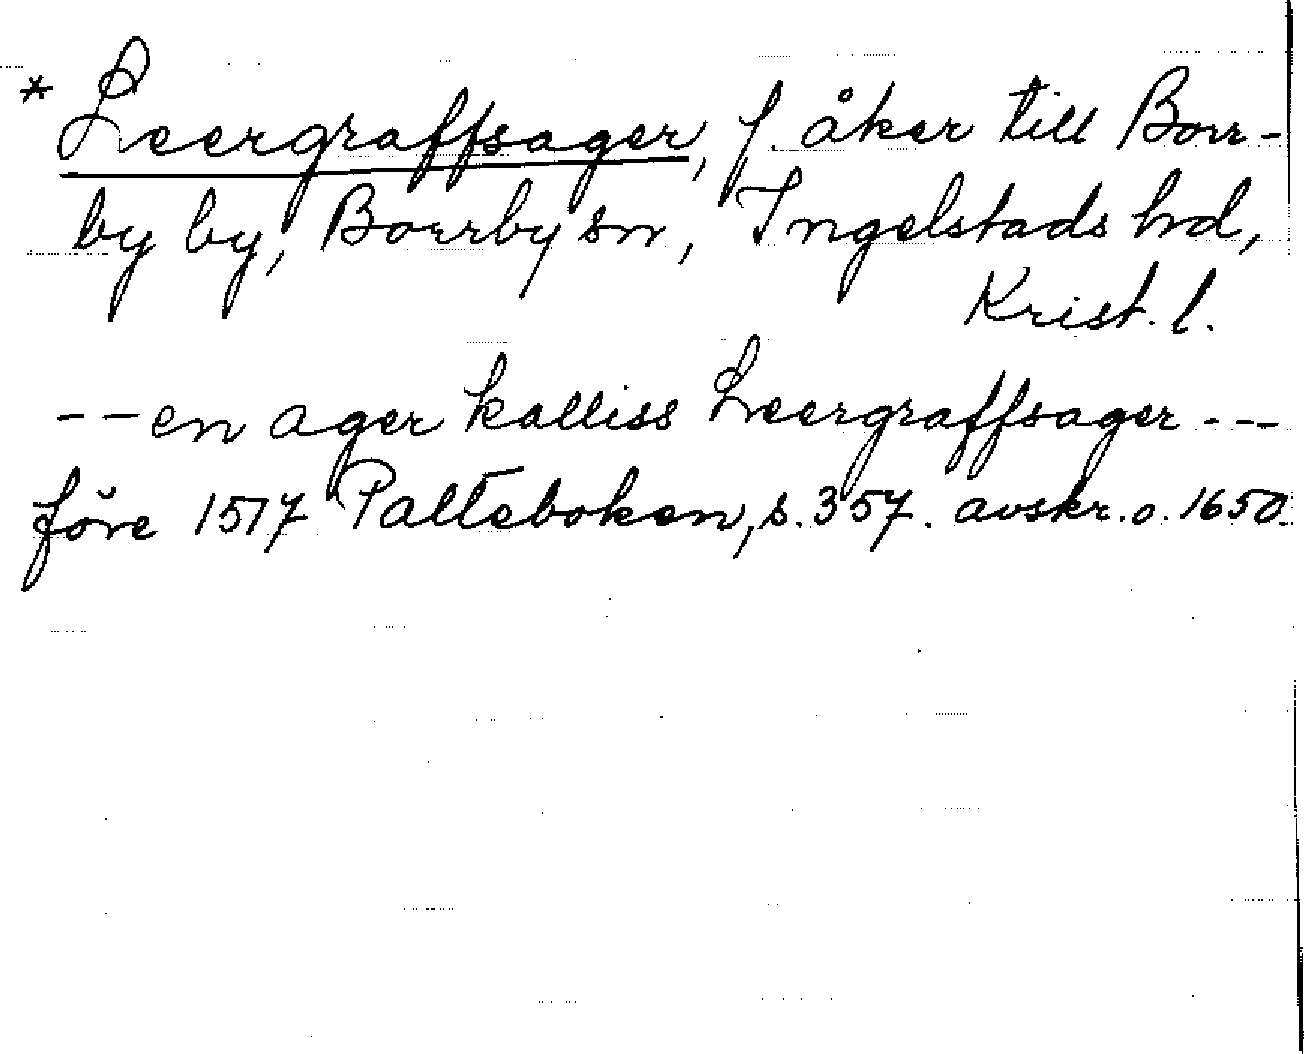 * Leergraffsager, f. åker till Borr-
by by, Borrby sn, Ingelstads hd,
Krist. l.
-- en ager kalliss Leergraffsager ---
före 1517 Palteboken, s. 357. avskr. o. 1650